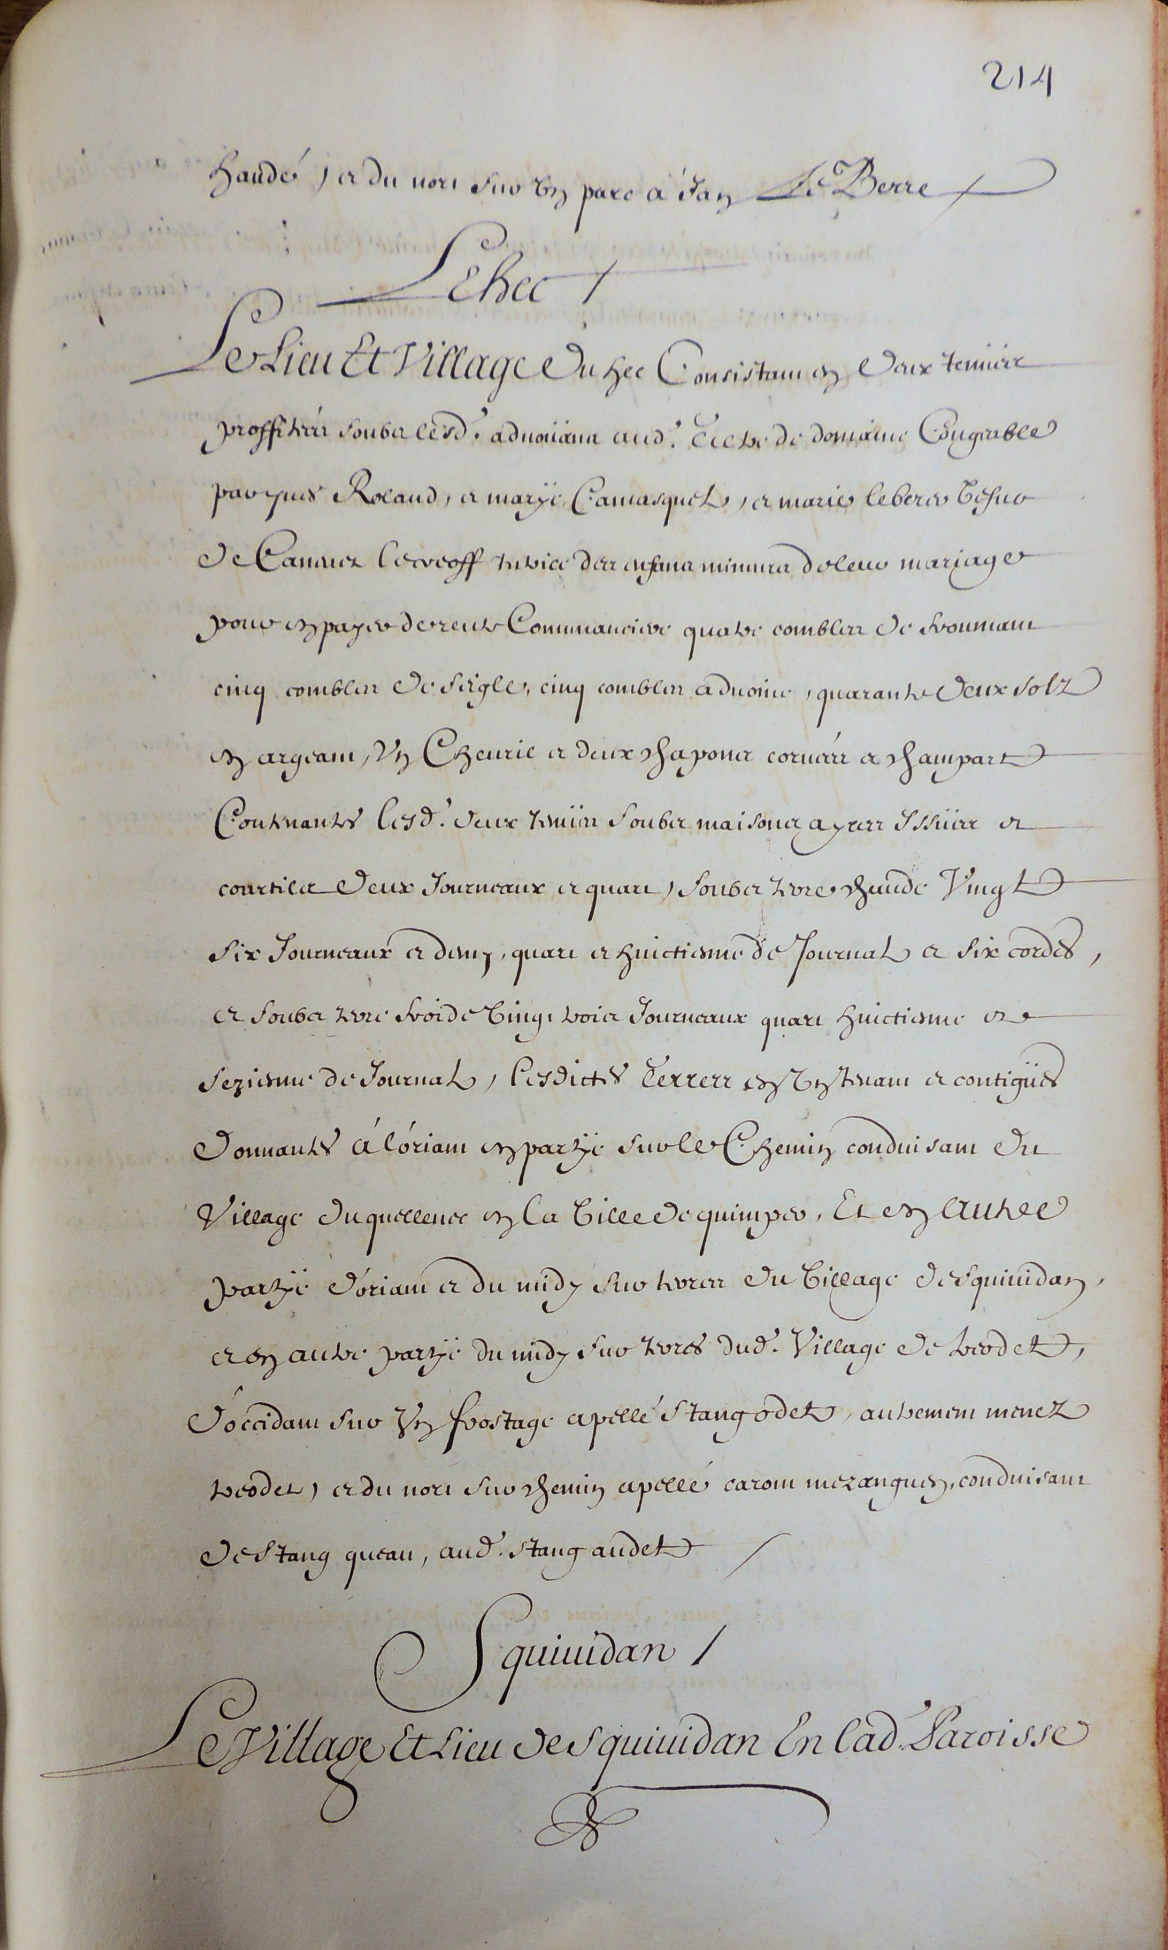 214
chaude, et du nort sur un parc a Jan Le Berre
Le hec /
Le Lieu Et Village du hec Consistant en deux tenües
proffitées soubz lesd. advoüant aud. tiltre de domaine Congeable
par yves Roland, et marÿe Camasquel, et marie le berre vefue
de Canevez tutrice des enfans mineurs de leur mariage
pour en payer de rente Commanciere quatre combles de froumant
cinq combles de seigle, cinq combles advoine, quarante deux solz
en argeant, un Chevrie et deux chapons corvées et champart
Contenantes lesd. deux tenües soubz maisons ayres Issües et
courtils deux Journeaux et quart, soubz terre chaude Vingt
six Journeaux et demy, quart et huictiesme de Journal et six cordes,
et soubz terre froide vingt trois Journeaux quart huictiesme et
seziesme de Journal, lesdictes terres en un tenant et contigües
donnantes à l'óriant en partÿe sur le Chemin conduisant du
Village du quellenec en la ville de quimper, Et en autre
partÿe d'óriant et du midy sur terres du village de squiuidan,
et en autre partÿe du midy sur terres dud. Village de treodet,
d'óccidant sur un frostage apellé stang odet, autrement menez
treodet, et du nort sur chemin apellé carront mezanguen, conduisant
de stang quean, aud. stang audet /
Squiuidan /
Le Village Et Lieu de squiuidan En lad. Paroisse